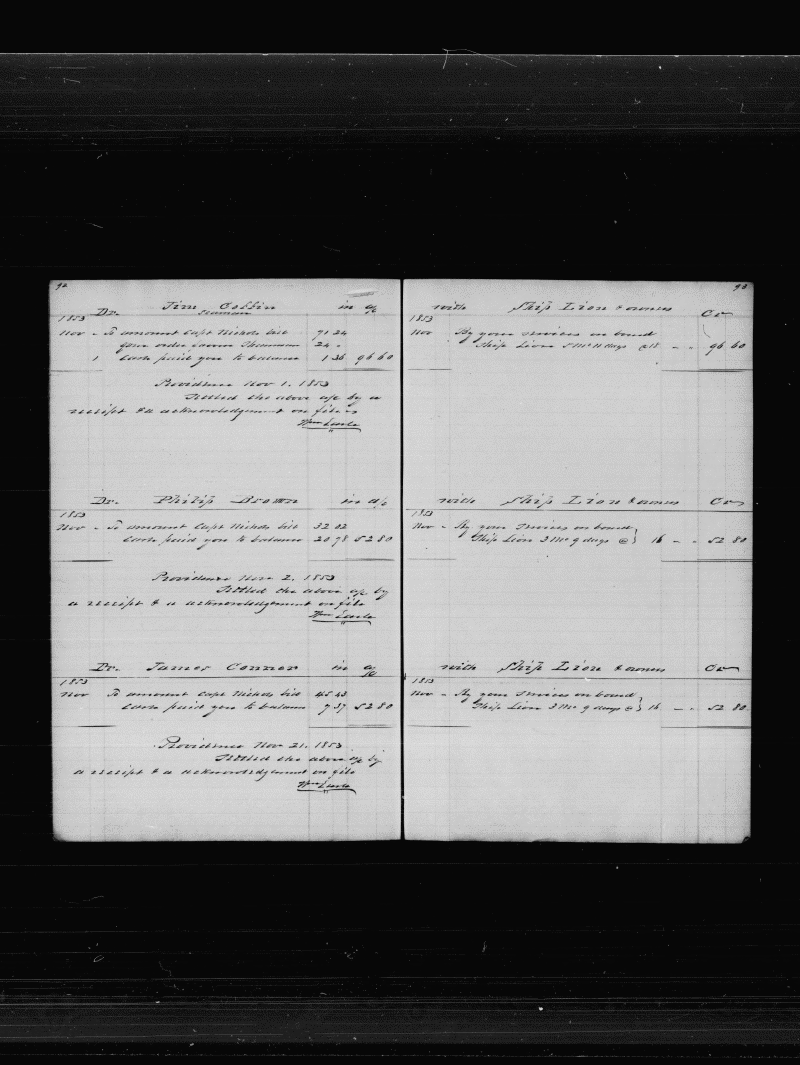 92
Dr. Tim Coffin in a/c
Seaman
1853
Nov - To amount Capt Nichols bill 71 24
your order favor 24 -
1 Cash paid you to balance 1 36 96 60
Providence Nov 1. 1853
Settled the above a/c by a
receipt & a acknowledgement on file
Wm Earle
Dr. Philip Brown in a/c
1853
Nov - To amount Capt Nichols bill 32 02
Cash paid you to balance 20 78 52 80
Providence Nov 2. 1853
Settled the above a/c by
a receipt & a acknowledgement on file
Wm Earle
Dr. James Connor in a/c
1853
Nov To amount Capt Nichols bill 45 43
Cash paid you to balance 7 37 52 80
Providence Nov 21. 1853
Settled the above a/c by
a receipt & a acknowledgement on file
Wm Earle
93
with Ship Lion & owners Cr
1853
Nov By your services on board
Ship Lion 5 Mo 11 days @ 18 - - 96 60
with Ship Lion & owners Cr
1853
Nov - By your services on board
Ship Lion 3 Mo 9 days @ 16 - - 52 80
with Ship Lion & owners Cr
1853
Nov - By your services on board
Ship Lion 3 Mo 9 days @ 16 - - 52 80